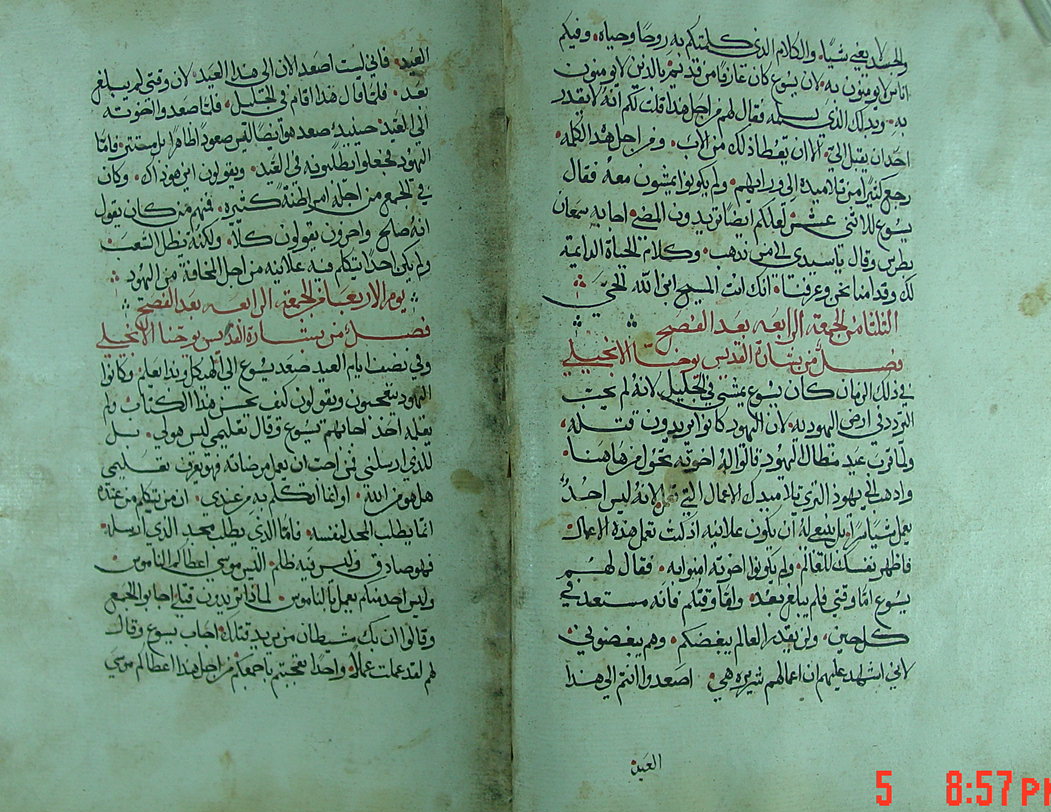 والجسد لا يغني شيئا، والكلام الذي كلمتكم به روحا وحياه، وفيكم
اناس لا يومنون به لان يسوع كان عارفا من قديم بالذين لا يومنون
به، وبذلك الذي يسلمه فقال لهم من اجل هذا قلت لكم انه لا يقدر
احد ان يقبل الي الا ان يعطا ذلك من الاب، ومن اجل هذه الكلمه
رجع كثيرا من تلاميذه الى ورايهم، ولم يكونوا يمشون معه فقال
يسوع للاثني عشر لعلكم ايضا تريدون المضي اجابه سمعان
بطرس وقال يا سيدي الى من نذهب، وكلام الحياة الدايمة
لك وقد امنا نحن وعرفنا انك انت المسيح ابن الله الحي
الثلثا من الجمعة الرابعه بعد الفصح
فصل من بشارة القديس يوحنا الانجيلي
في ذلك الزمان كان يسوع يمشي في الجليل لانه لم يحب
التردد في ارض اليهوديه، لان اليهود كانوا يريدون قتله،
ولما قرب عيد مظال اليهود قالوا له اخوته تحول من هاهنا
واذهب الى يهوذا لترى تلاميذك الاعمال التي تعمل لانه ليس احدٌ
يعمل شيا سرا بل ينبغي له ان يكون علانيه اذ كنت تعمل هذه الاعمال
فاظهر نفسك للعالم، ولم يكونوا اخوته امنوا به، فقال لهم
يسوع اما وقتي فلم يبلغ بعد، واما وقتكم فانه مستعد في
كل حين، ولن يقدر العالم يبغضكم، وهم يبغضوني
لاني اشهد عليهم ان اعمالهم شريره هي، اصعدوا انتم الى هذا
العيد
العيد، فاني لست اصعد الان الى هذا العيد لان وقتي لم يبلغ
بعد، فلما قال هذا اقام في الجليل، فلما صعدوا اخوته
الى العيد حينيذ صعد هو ايضا ليس صعودا ظاهرا بل مستتر فاما
اليهود فجعلوا يطلبونه في العيد، ويقولون اين هو ذاك، وكان
في الجمع من اجله امراطنة كثيره، فمنهم من كان يقول
انه صالح واخرون يقولون كلا، ولكنه يضل الشعب
ولم يكن احدا يتكلم فيه علانيه من اجل المخافة من اليهود
يوم الاربعا من الجمعه الرابعه بعد الفصح
فصل من بشارة القديس يوحنا الانجيلي
وفي نصف ايام العيد صعد يسوع الى الهيكل وبدا يعلم وكانوا
اليهود يتعجبون ويقولون كيف يحسن هذا الكتاب ولم
يعلمه احد اجابهم يسوع وقال تعليمي ليس هو لي، بل
للذي ارسلني فمن احب ان يعمل مرضاته فهو يعرف تعليمي
هل هو من الله، او انما اتكلم به من عندي، ان من يتكلم من عنده
انما يطلب المجد لنفسه، فاما الذي يطلب مجد الذي ارسله
فهو صادق وليس فيه ظلم، اليس موسى اعطاكم الناموس
وليس احد منكم يعمل بالناموس، لماذا تريدون قتلي اجابوا الجمع
وقالوا ان بك شيطان من يريد قتلك اجاب يسوع وقال
لهم لقد عملت عملا واحدا تعجبتم باجمعكم من اجل هذا اعطاكم موسى
5 8:57 PM